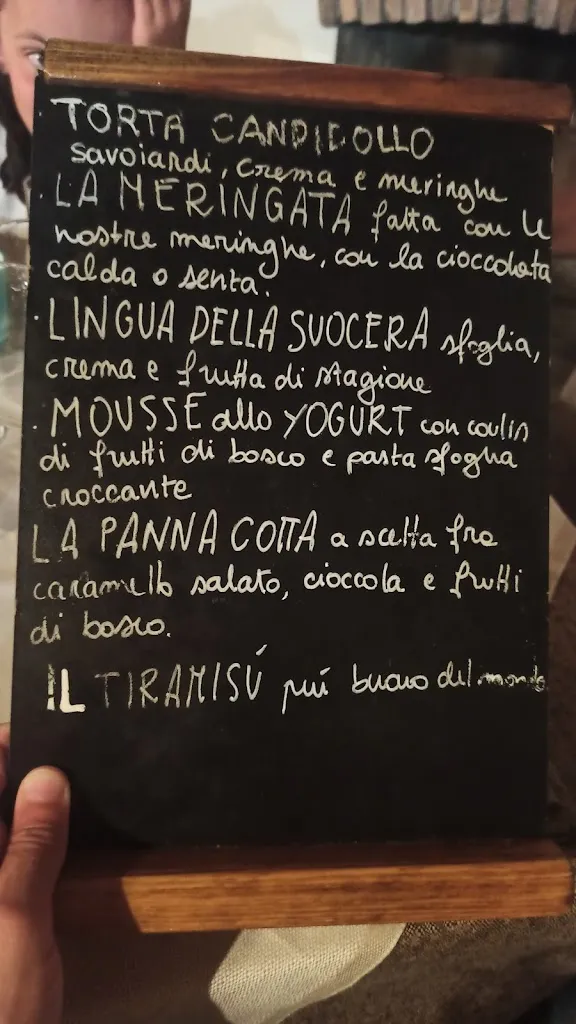 TORTA CANDIDOLLO
savoiardi, crema e meringhe
. LA MERINGATA fatta con le
nostre meringhe, con la cioccolata
calda o senza.
. LINGUA DELLA SUOCERA sfoglia,
crema e frutta di stagione
. MOUSSE allo YOGURT con coulis
di frutti di bosco e pasta sfoglia
croccante
LA PANNA COTTA a scelta fra
caramello salato, cioccola e frutti
di bosco.
IL TIRAMISÚ piú buono del mondo